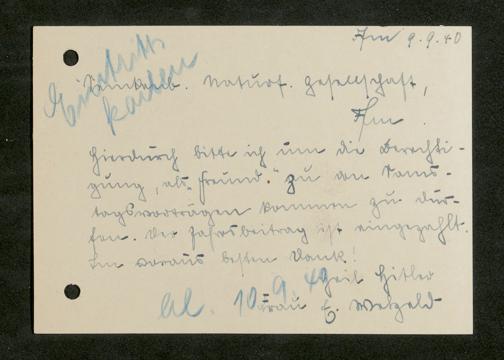 Ffm 9.9.40
Eintritts
karten
Senckenb. Naturf. Gesellschaft,
Ffm.
Hierdurch bitte ich um die Berechti-
gung, als "Freund" zu den Sams-
tagsvorträgen kommen zu dür-
fen. Der Jahresbeitrag ist eingezahlt.
Im voraus besten Dank!
Heil Hitler
Frau E. Wetzeld
10.9.40